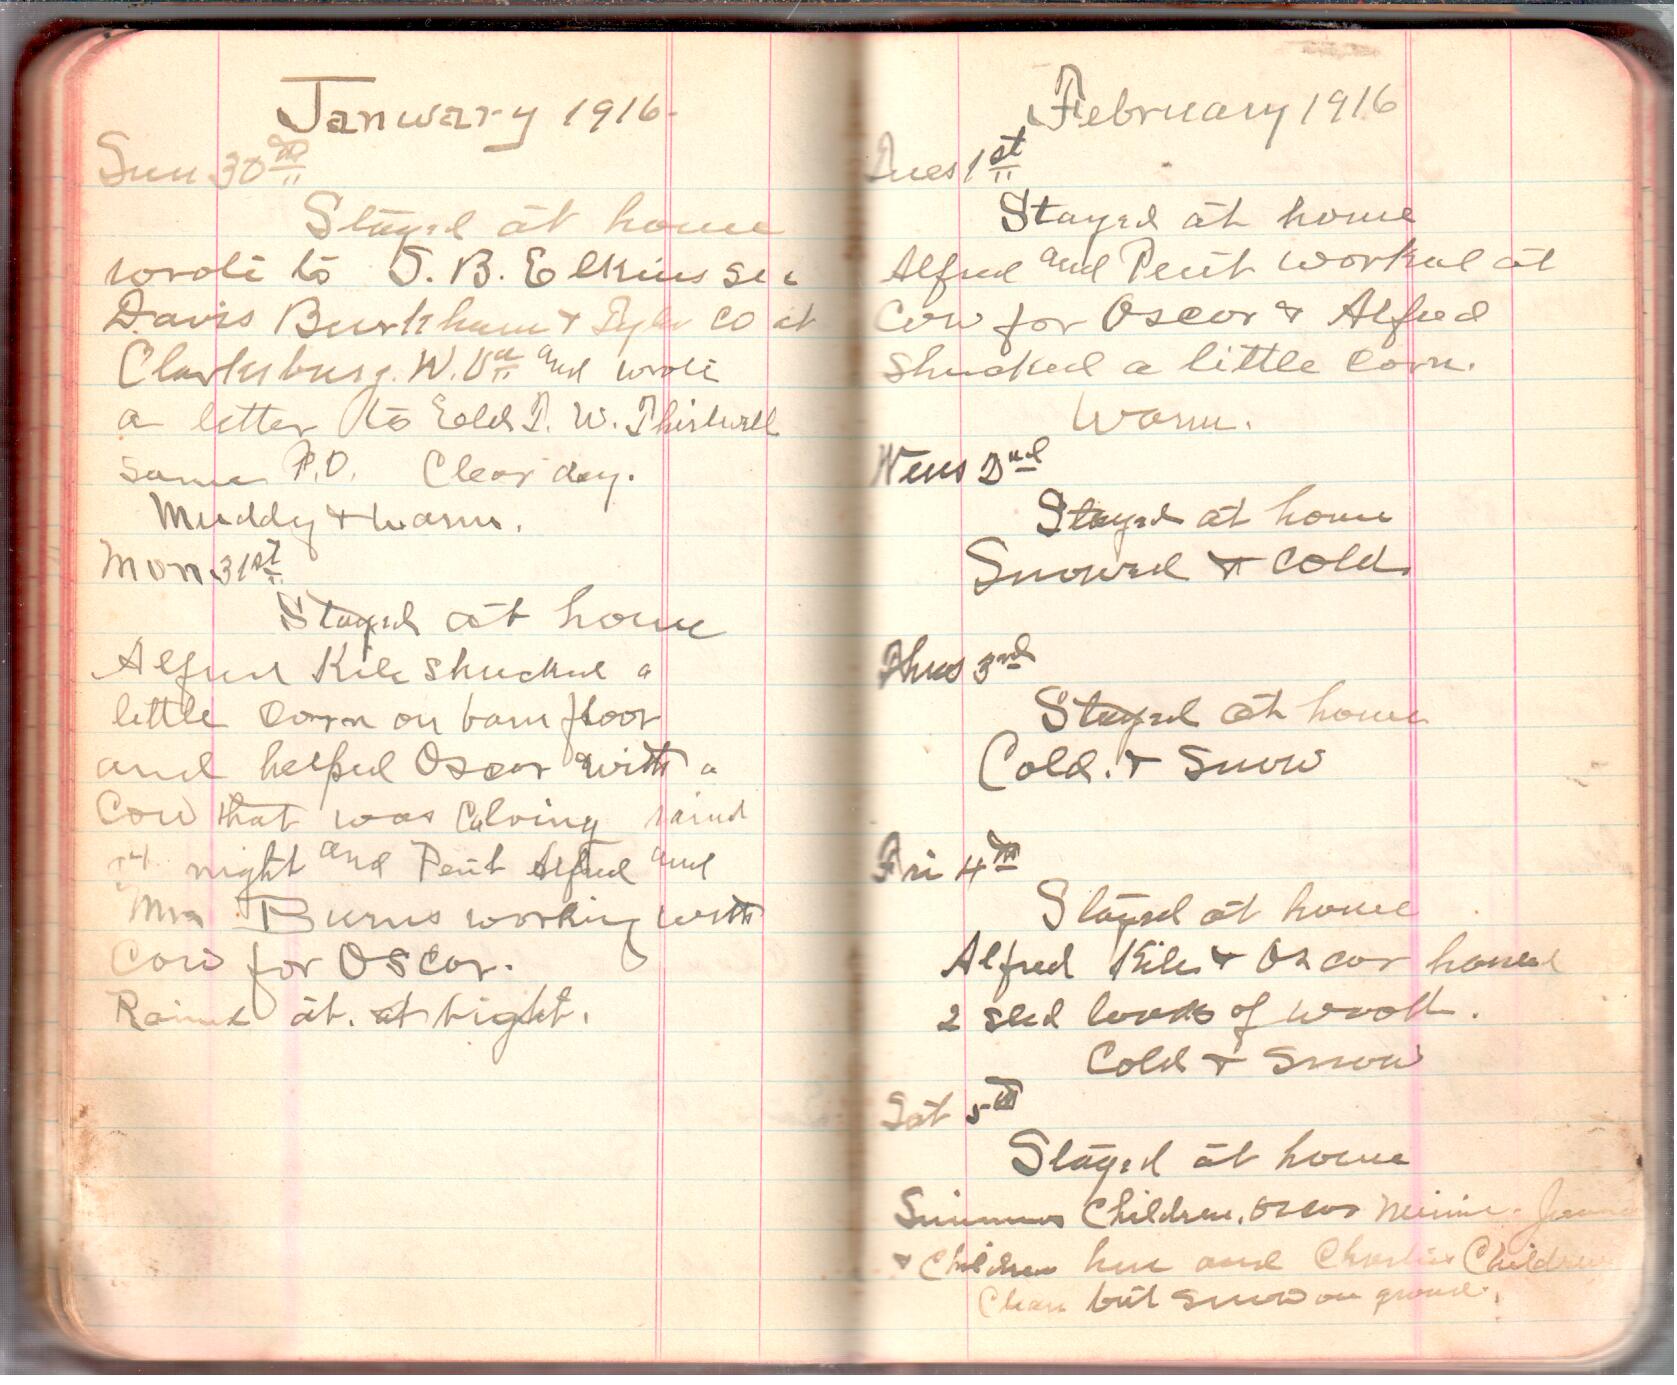 January 1916.
Sun 30th
Stayed at home
wrote to S. B. Elkins se
Davis Burkham & Tyler Co at
Clarksburg. W. Va and wrote
a letter to Eld T. W. Thirlwell
same P.O. Clear day.
Muddy & warm.
Mon 31st
Stayed at home
Alfred Kile shucked a
little corn on barn floor
and helped Oscar with a
Cow that was calving raind
at night and Peut Alfred and
Mrs Burns working with
cow for Oscar.
Rained at. at night.
February 1916
Tues 1st
Stayed at home
Alfred and Peut worked at
Cow for Oscar & Alfred
shucked a little corn.
Warm.
Wens 2nd
Stayed at home
Snowed & cold
Thurs 3rd
Stayed at home
Cold. & Snow
Fri 4th
Stayed at home
Alfred Kile & Oscar hauled
2 sled loads of wood.
Cold & Snow
Sat 5th
Stayed at home
Simmons Children, Oscar Minnie.
& Children here and Charlies Children
Clear but snow on ground.